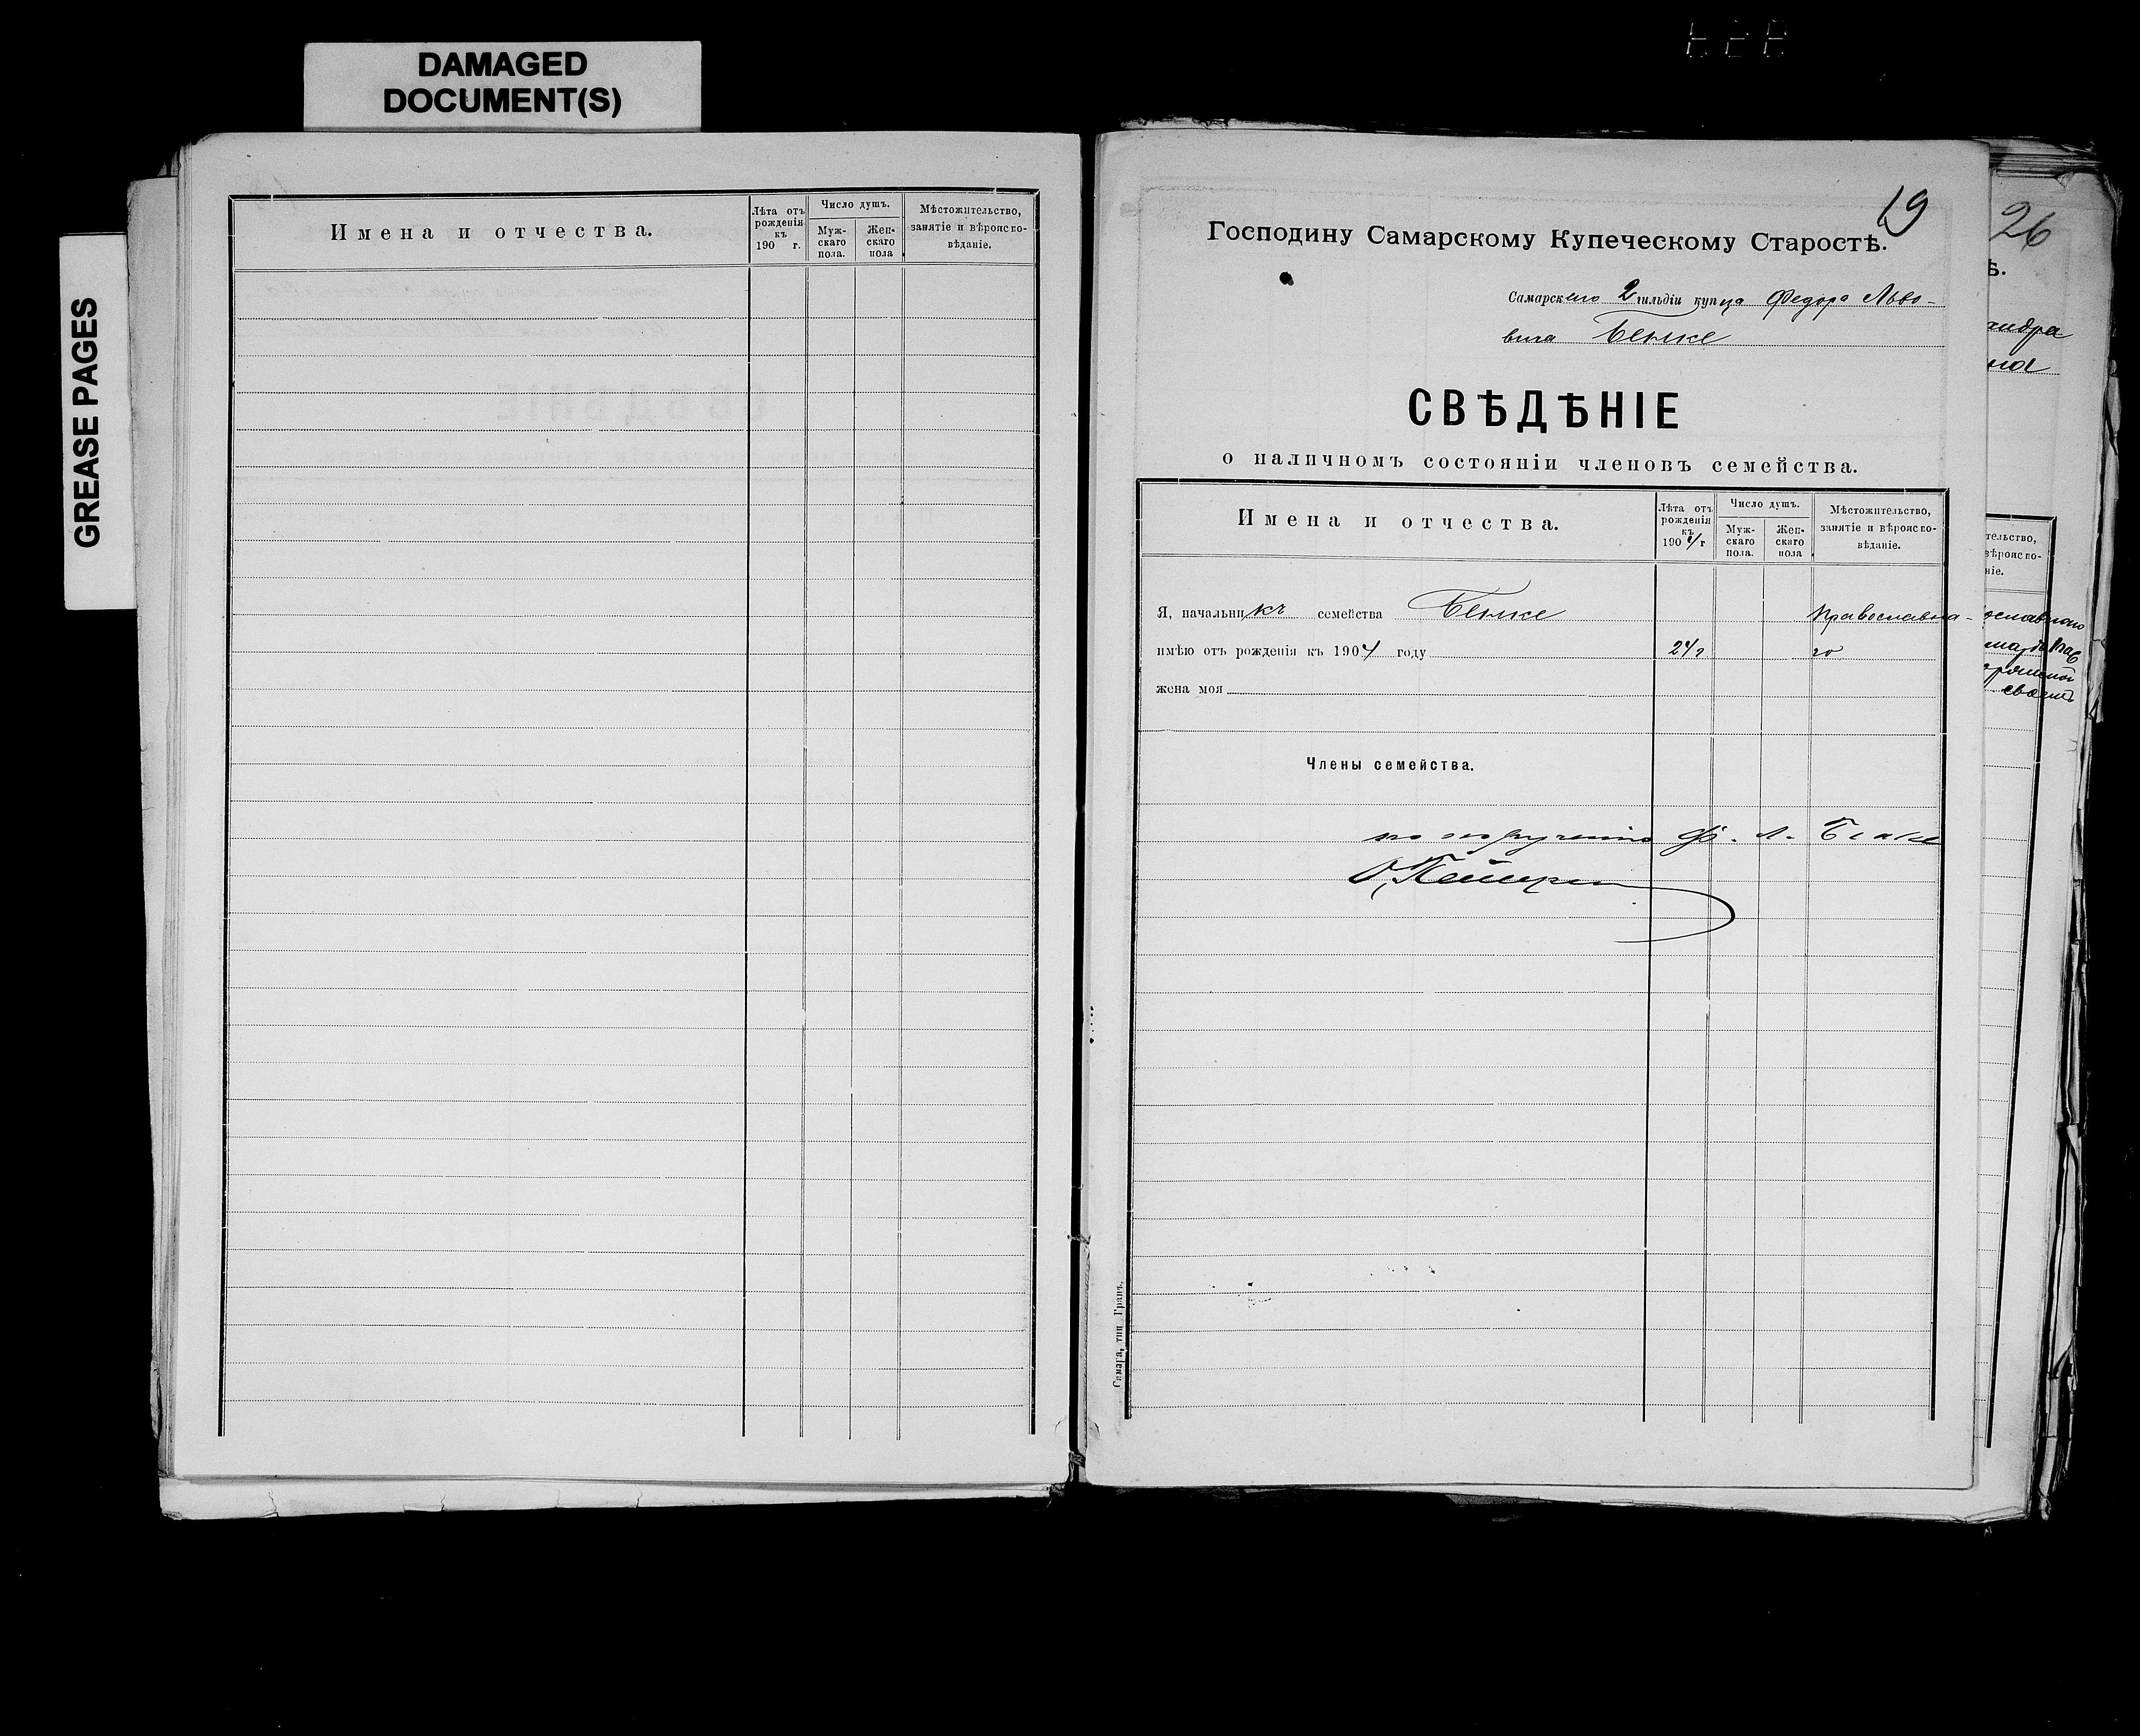 DAMAGED
DOCUMENT(S)
GREASE PAGES
Имена и отчества.
Лѣта отъ рожденія къ 190 г.
Число душъ.
Муж-скаго пола.
Жен-скаго пола
Мѣстожительство, занятіе и вѣроиспо-вѣданіе.
19
Господину Самарскому Купеческому Старостѣ.
Самарскаго 2 гильдіи купца Федора Льво-
вича Бенке
СВѢДѢНІЕ
о наличномъ состояніи членовъ семейства.
Имена и отчества.
Лѣта отъ рожденія къ 1904 г
Число душъ.
Муж-скаго пола.
Жен-скаго пола
Мѣстожительство, занятіе и вѣроиспо-вѣданіе.
Я, начальникъ семейства Бенке Православна-
имѣю отъ рожденія къ 1904 году 24 го
жена моя
Члены семейства.
по порученію Ф. Л. Бенке
Самара, тип. Гранъ.
26
ѣ.
андра
на
тельство,
вѣроиспо-
ніе.